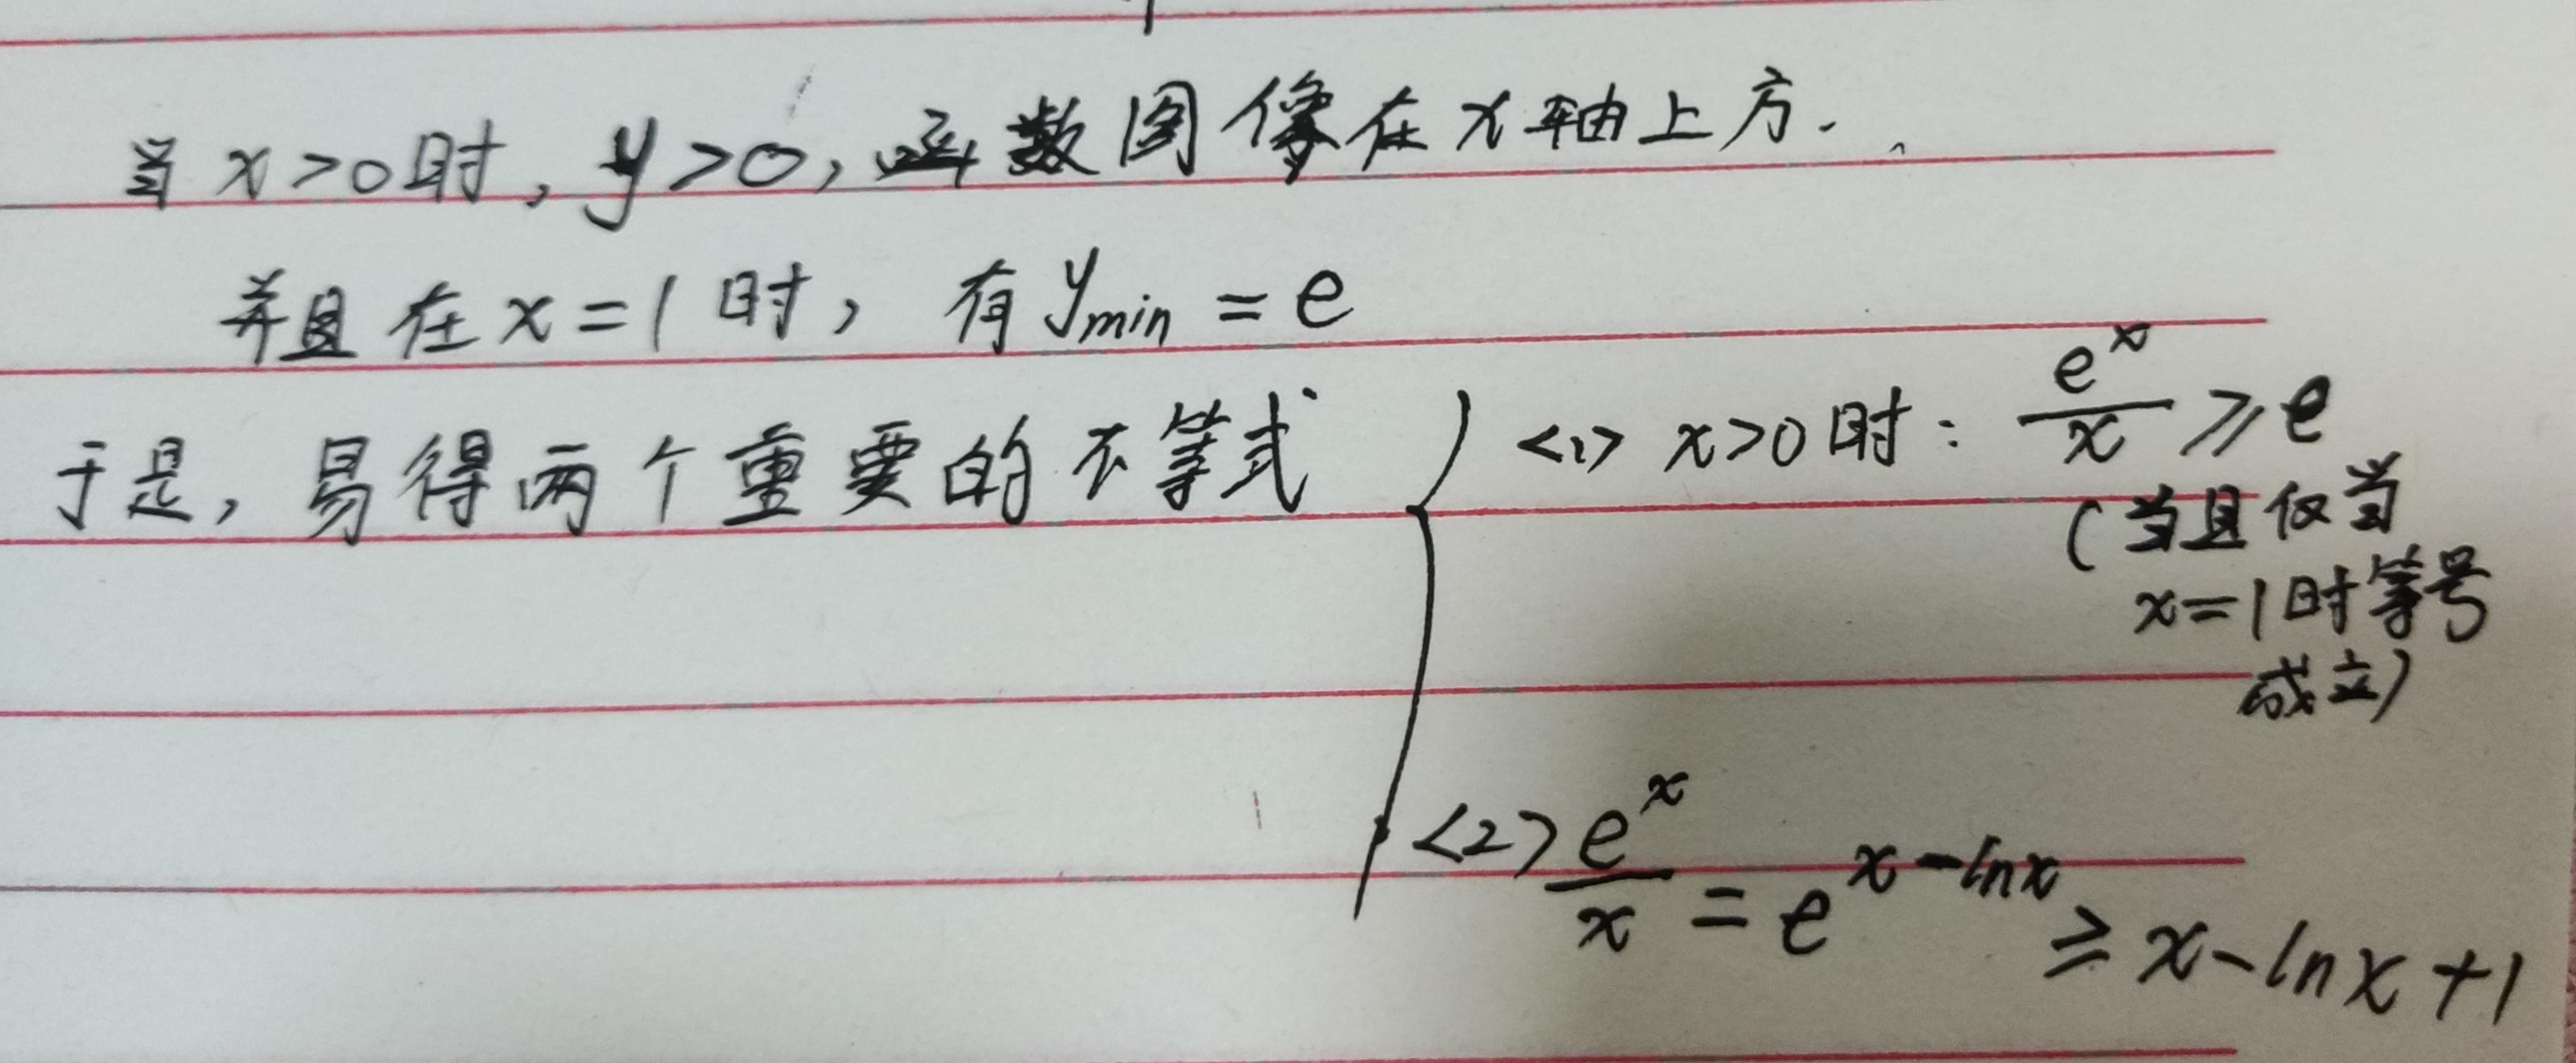 当x>0时,y>0,函数图像在x轴上方.
并且在x=1时,有y_min=e
于是,易得两个重要的不等式
<1> x>0时: e^x/x ≥ e
(当且仅当
x=1时等号
成立)
<2> e^x/x = e^(x-lnx) ≥ x-lnx+1